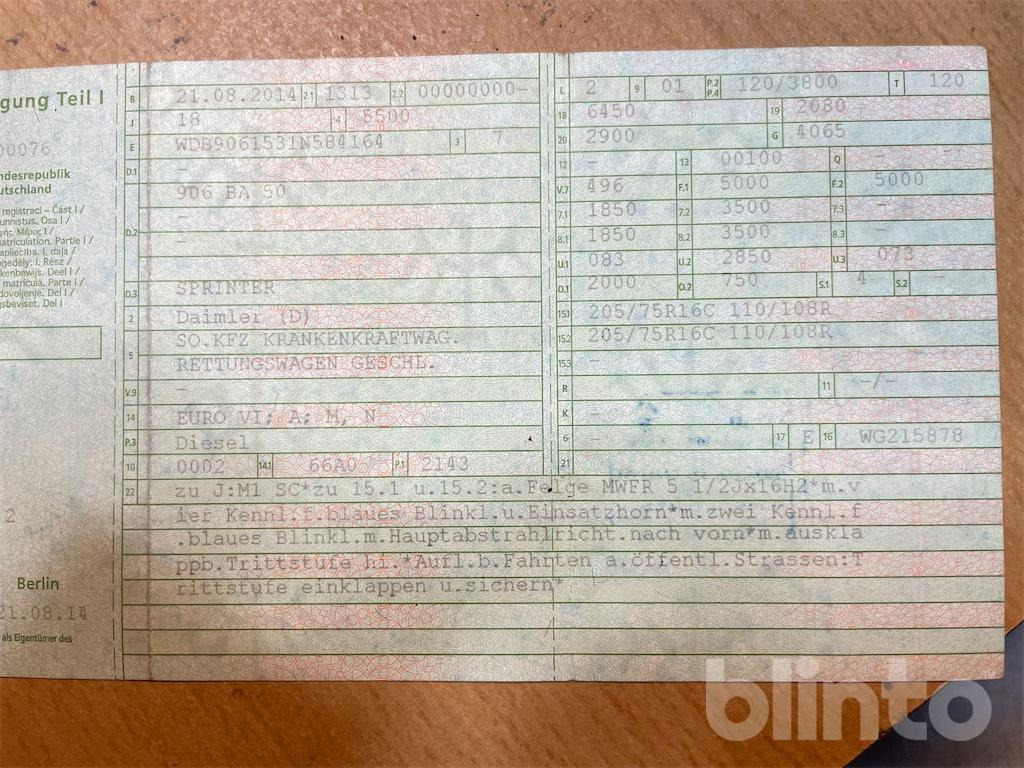 gung Teil I
00076
ndesrepublik
eutschland
registraci – Část I /
unnistus. Osa I /
atriculation. Partie I /
apliecība. I. daļa /
ngedély. I. Rész /
kenbewijs. Deel I /
matrícula. Parte I /
dovoljenje. Del I /
gsbeviset. Del I
2
Berlin
21.08.14
als Eigentümer des
B 21.08.2014 2.1 1313 2.2 00000000-
J 18 4 8500
E WDB9061531N584164 3 7
D.1 -
906 BA 50
-
D.2 -
D.3 SPRINTER
2 Daimler (D)
SO.KFZ KRANKENKRAFTWAG.
5 RETTUNGSWAGEN GESCHL.
V.9 -
14 EURO VI; A; M, N
P.3 Diesel
10 0002 14.1 66A0 P.1 2143
L 2 9 01 P.2 P.4 120/3800 T 120
18 6450 19 2080
20 2900 G 4065
12 - 13 00100 Q -
V.7 496 F.1 5000 F.2 5000
7.1 1850 7.2 3500 7.3 -
8.1 1850 8.2 3500 8.3 -
U.1 083 U.2 2850 U.3 073
O.1 2000 O.2 750 S.1 4 S.2 -
15.1 205/75R16C 110/108R
15.2 205/75R16C 110/108R
15.3 -
R 11 -/-
K -
6 - 17 E 16 WG215878
21
22 zu J:M1 SC*zu 15.1 u.15.2:a.Felge MWFR 5 1/2Jx16H2*m.v
ier Kennl.f.blaues Blinkl.u.Einsatzhorn*m.zwei Kennl.f
.blaues Blinkl.m.Hauptabstrahlricht.nach vorn*m.auskla
ppb.Trittstufe hi.*Aufl.b.Fahrten a.öffentl.Strassen:T
rittstufe einklappen u.sichern*
blinto